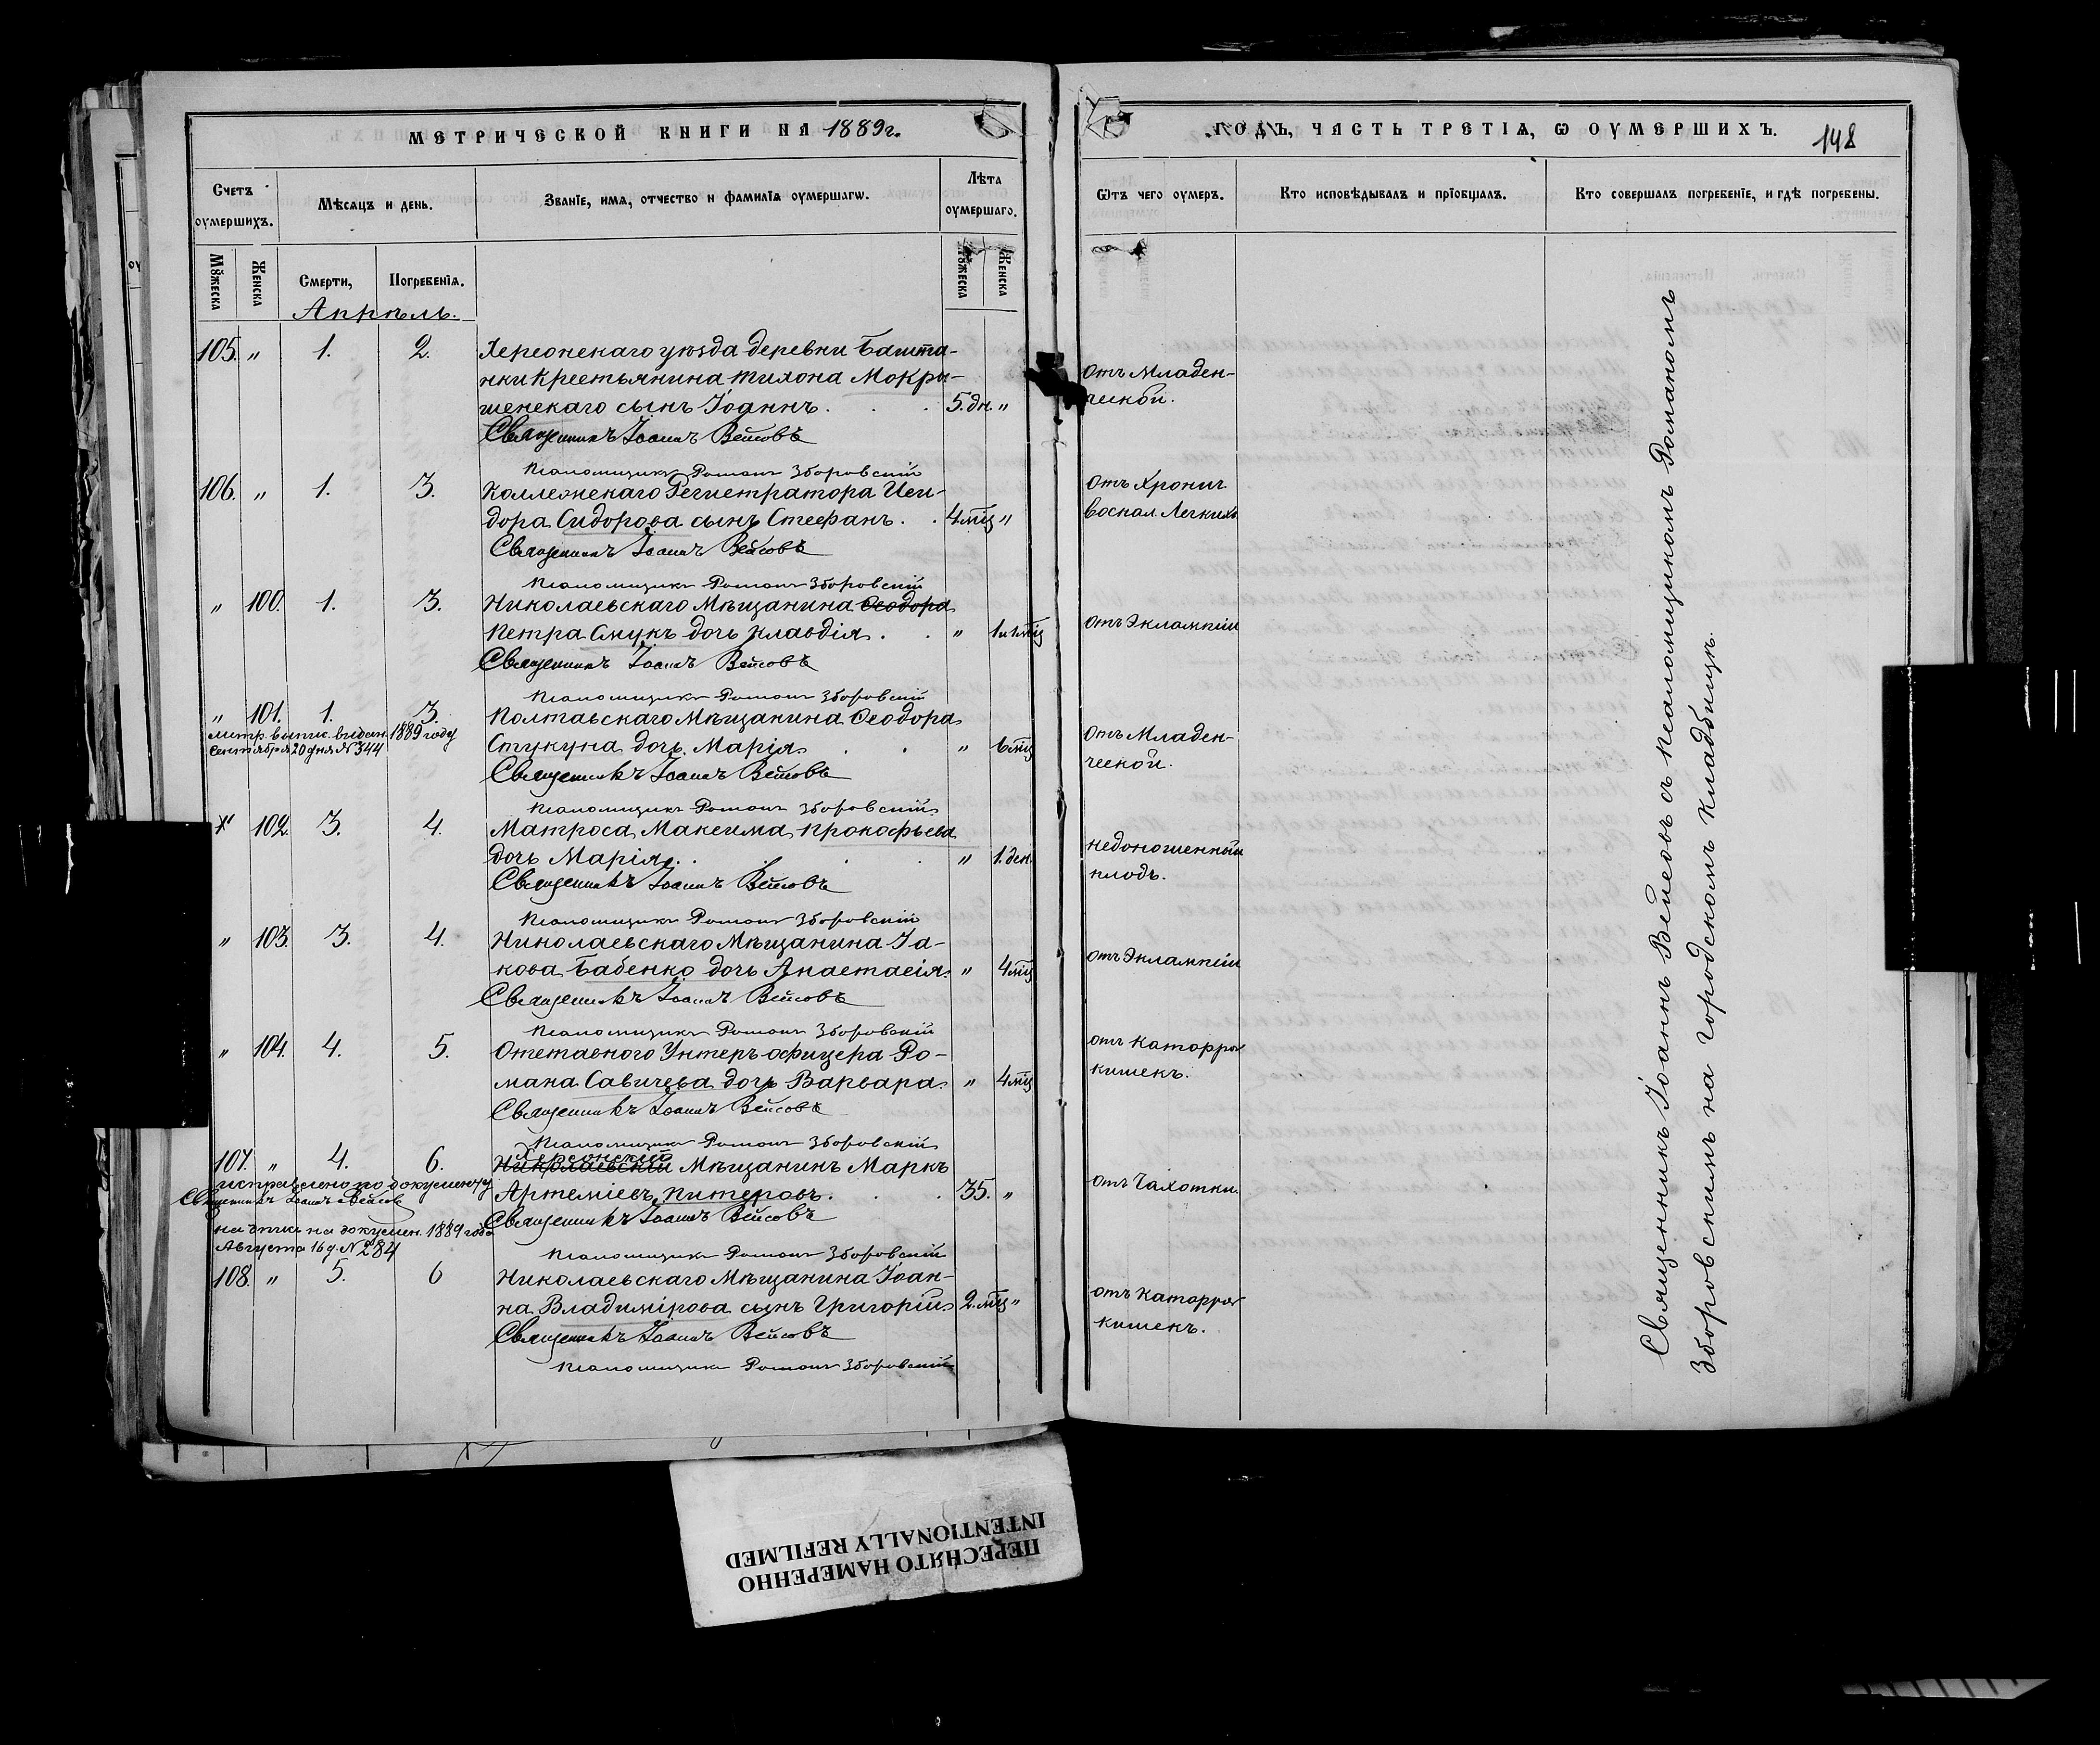 МЕТРИЧЕСКОЙ КНИГИ НА 1889 г.
Счетъ оумершихъ.
Мѣсяцъ и день.
Званїе, имя, отчество и фамилїя оумершагѡ.
Лѣта оумершаго.
Мꙋжеска
Женска
Смерти,
Погребенїя.
Мꙋжеска
Женска
Апрѣль.
105. " 1. 2. Херсонскаго уѣзда деревни Башта-
нки крестьянина Тихона Мокри-
шенскаго сынъ Іоаннъ. 5. дн. "
Священникъ Іоаннъ Вейсовъ
Псаломщикъ Романъ Зборовскій
106. " 1. 3. Коллежскаго Регистратора Иси-
дора Сидорова сынъ Стефанъ. 4 мц "
Священникъ Іоаннъ Вейсовъ
Псаломщикъ Романъ Зборовскій
" 100. 1. 3. Николаевскаго Мѣщанина Ѳеодора
Петра Смукъ дочь Клавдія. " 1 и 1 мц
Священникъ Іоаннъ Вейсовъ
Псаломщикъ Романъ Зборовскій
" 101. 1. 3. Полтавскаго Мѣщанина Ѳеодора
метр. выпис. выдан. 1889 году
Сентября 20 дня N 344
Стукуна дочь Марія. " 6 мц
Священникъ Іоаннъ Вейсовъ
Псаломщикъ Романъ Зборовскій
" 102. 3. 4. Матроса Максима Прокофьева
дочь Марія. " 1. ден.
Священникъ Іоаннъ Вейсовъ
Псаломщикъ Романъ Зборовскій
" 103. 3. 4. Николаевскаго Мѣщанина Іа-
кова Бабенко дочь Анастасія. " 4 мц
Священникъ Іоаннъ Вейсовъ
Псаломщикъ Романъ Зборовскій
" 104. 4. 5. Отставного Унтеръ-офицера Ро-
мана Савичева дочь Варвара. " 4 мц
Священникъ Іоаннъ Вейсовъ
Псаломщикъ Романъ Зборовскій
Херсонскій
107. " 4. 6. Николаевскій Мѣщанинъ Маркъ
исправлено по документу
Священникъ Іоаннъ Вейсовъ
Артеміевъ Питеровъ. 35. "
Священникъ Іоаннъ Вейсовъ
на докумен. 1889 года
Августа 16 д. N 284
Псаломщикъ Романъ Зборовскій
108. " 5. 6 Николаевскаго Мѣщанина Іоан-
на Владимірова сынъ Григорій. 2. мц "
Священникъ Іоаннъ Вейсовъ
Псаломщикъ Романъ Зборовскій
ГОДЪ, ЧАСТЬ ТРЕТІЯ, Ѡ ОУМЕРШИХЪ.
148
Ѿтъ чего оумеръ.
Кто исповѣдывалъ и прїобщалъ.
Кто совершалъ погребенїе, и гдѣ погребены.
отъ Младен-
ческой.
отъ Хронич.
воспал. Легкихъ
отъ Эклампсіи
отъ Младен-
ческой.
недоношенный
плодъ.
отъ Эклампсіи
отъ Катарра
кишекъ.
отъ Чахотки.
отъ Катарра
кишекъ.
Священникъ Іоаннъ Вейсовъ съ псаломщикомъ Романомъ
Зборовскимъ на городскомъ кладбищѣ.
ПЕРЕСНЯТО НАМЕРЕННО
INTENTIONALLY REFILMED